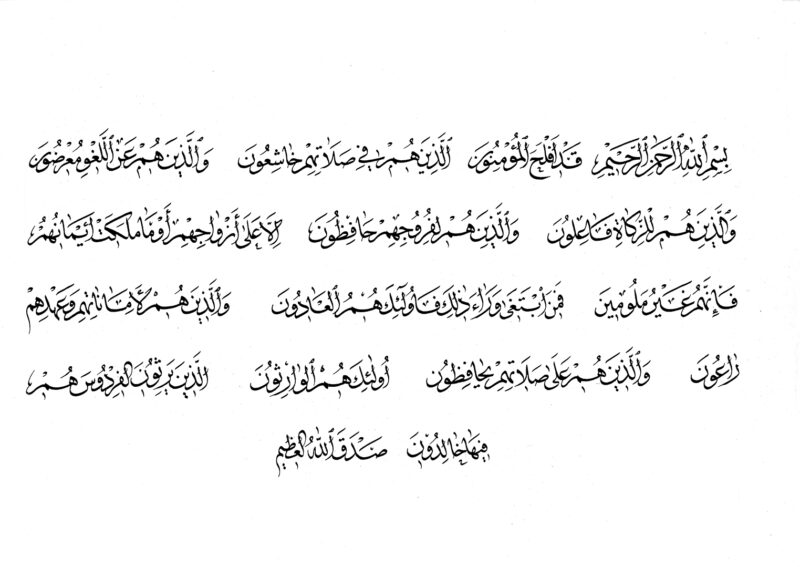 بِسْمِ ٱللهِ ٱلرَّحْمٰنِ ٱلرَّحِيْمِ قَدْ أَفْلَحَ ٱلْمُؤْمِنُونَ الَّذِينَ هُمْ فِي صَلَاتِهِمْ خَاشِعُونَ وَالَّذِينَ هُمْ عَنِ ٱللَّغْوِ مُعْرِضُونَ
وَالَّذِينَ هُمْ لِلزَّكَاةِ فَاعِلُونَ وَالَّذِينَ هُمْ لِفُرُوجِهِمْ حَافِظُونَ إِلَّا عَلَى أَزْوَاجِهِمْ أَوْ مَا مَلَكَتْ أَيْمَانُهُمْ
فَإِنَّهُمْ غَيْرُ مَلُومِينَ فَمَنِ ٱبْتَغَى وَرَاءَ ذٰلِكَ فَأُولَٰئِكَ هُمُ الْعَادُونَ وَالَّذِينَ هُمْ لِأَمَانَاتِهِمْ وَعَهْدِهِمْ
رَاعُونَ وَالَّذِينَ هُمْ عَلَى صَلَاتِهِمْ يُحَافِظُونَ أُولَٰئِكَ هُمُ ٱلْوَارِثُونَ الَّذِينَ يَرِثُونَ الْفِرْدَوْسَ هُمْ
فِيهَا خَالِدُونَ صَدَقَ ٱللهُ الْعَظِيمُ